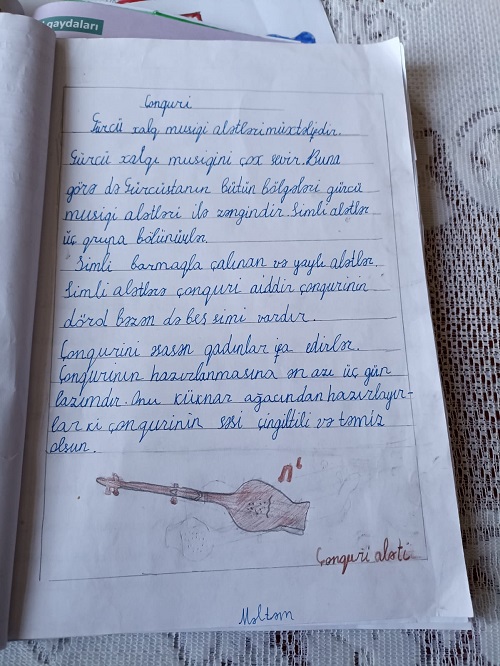 qaydaları
Çonguri
Gürcü xalq musiqi alətləri müxtəlifdir.
Gürcü xalqı musiqini çox sevir. Buna
görə də Gürcüstanın bütün bölgələri gürcü
musiqi alətləri ilə zəngindir. Simli alətlər
üç qrupa bölünürlər.
Simli barmaqla çalınan və yaylı alətlər.
Simli alətlərə çonquri aiddir çonqurinin
dörd bəzən də beş simi vardır.
Çonqurini əsasən qadınlar ifa edirlər.
Çonqurinin hazırlanmasına ən azı üç gün
lazımdır. Onu küknar ağacından hazırlayır-
lar ki çonqurinin səsi çingiltili və təmiz
olsun.
Çonquri aləti
Məltəm